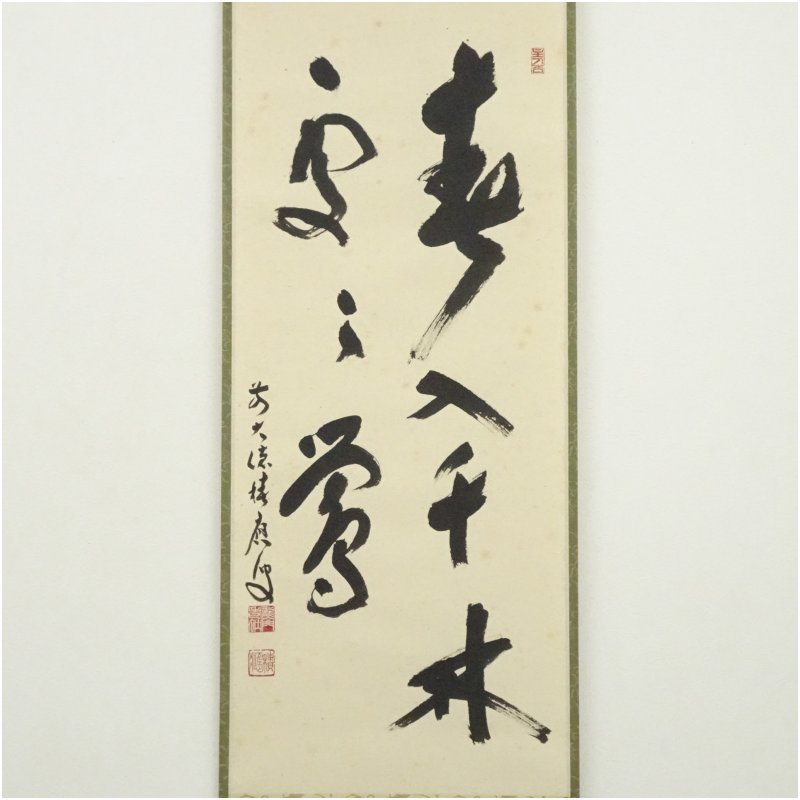 春入千林
処〻鶯
前大徳棲應叟